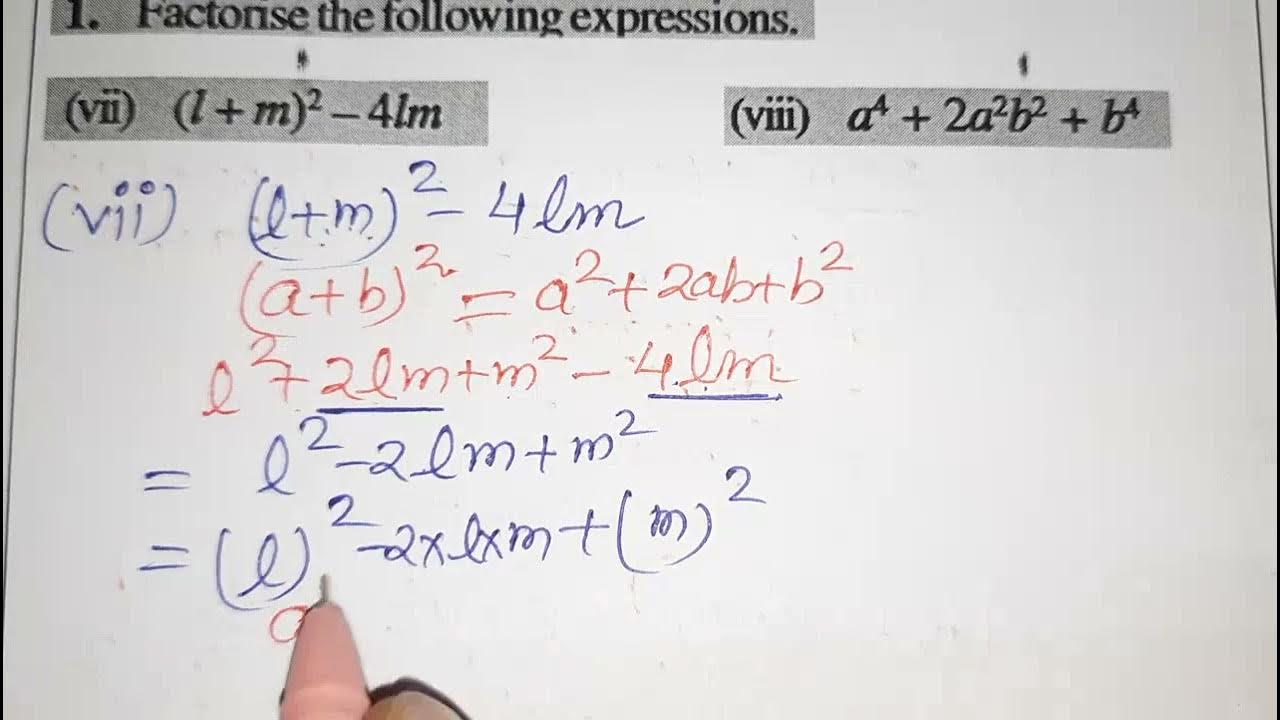 1. Factorise the following expressions.
(vii) (l + m)² – 4lm
(viii) a⁴ + 2a²b² + b⁴
(vii) (l+m)² – 4lm
(a+b)² = a²+2ab+b²
l²+2lm+m² – 4lm
= l² – 2lm + m²
= (l)² – 2×l×m + (m)²
a